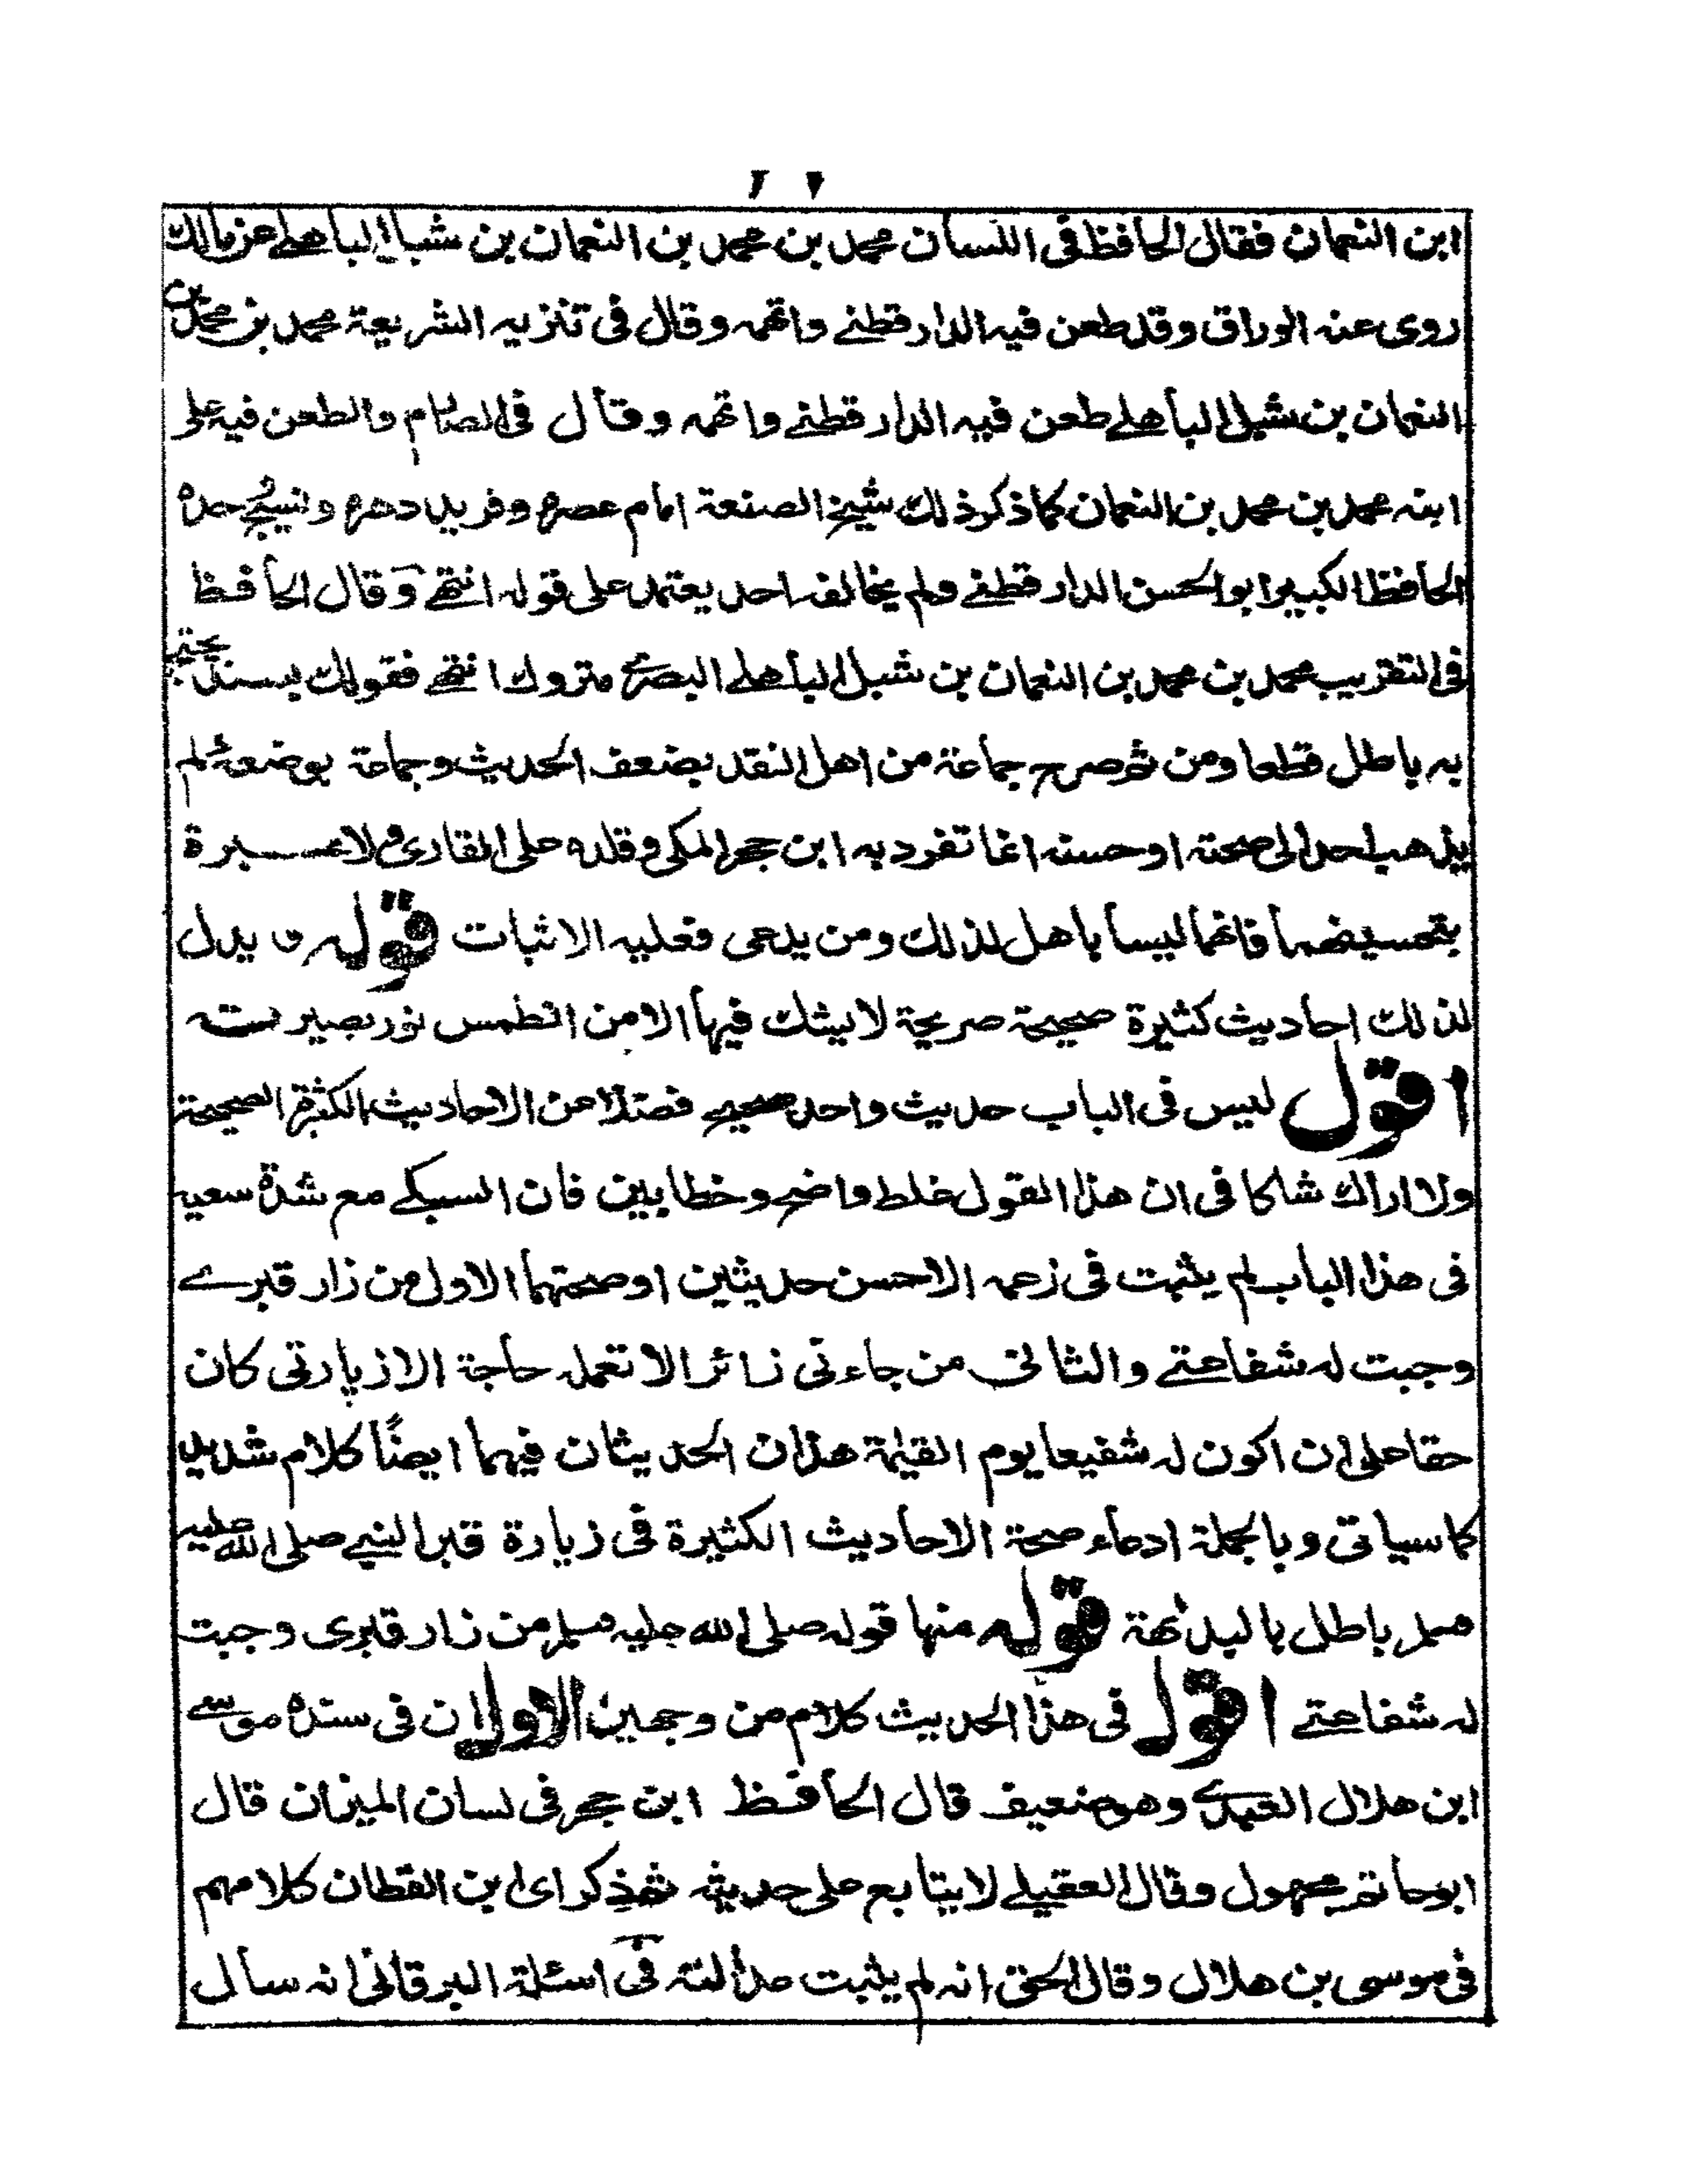 ابن النعمان فقال الحافظ فی اللسان محمد بن محمد بن النعمان بن شبل الباهلے عن مالك
روی عنه الوراق وقد طعن فیه الدارقطنے واتهمه وقال فی تنزیه الشریعة محمد بن محمد بن
النعمان بن شبل الباهلے طعن فیه الدارقطنے واتهمه وقال فی الصارم والطعن فیه علی
ابنه محمد بن محمد بن النعمان كما ذكر ذلك شیخ الصنعة امام عصره وفرید دهره ونسیج وحده
الحافظ الكبیر ابو الحسن الدارقطنے ولم یخالفه احد یعتمد علی قوله انتهے وقال الحافظ
فی التقریب محمد بن محمد بن النعمان بن شبل الباهلے البصرے متروك انتهے فقولك بسند یحتج
به باطل قطعا ومن ثم صرح جماعة من اهل النقد بضعف الحدیث وجماعة بوضعه لم
یذهب احد الی صحته او حسنه انما تفرد به ابن حجر المكی وقلده علی القاری ولا عبرة
بتحسینهما فانهما لیسا باهل لذلك ومن یدعی فعلیه الاثبات قوله یدل
لذلك احادیث كثیرة صحیحة صریحة لا یشك فیها الا من انطمس نور بصیرته
اقول لیس فی الباب حدیث واحد صحیح فضلا عن الاحادیث الكثیرة الصحیحة
ولا اراك شاكا فی ان هذا القول غلط واضح وخطا بین فان السبكے مع شدة سعیه
فی هذا الباب لم یثبت فی زعمه الا حسن حدیثین او صحتهما الاول من زار قبرے
وجبت له شفاعتے والثانی من جاءنی زائرا لا تعمله حاجة الا زیارتی كان
حقا علی ان اكون له شفیعا یوم القیٰمة هذان الحدیثان فیهما ایضًا كلام شدید
كما سیاتی وبالجملة ادعاء صحة الاحادیث الكثیرة فی زیارة قبر النبے صلی الله علیه
وسلم باطل بالبداهة قوله منها قوله صلی الله علیه وسلم من زار قبری وجبت
له شفاعتے اقول فی هذا الحدیث كلام من وجهین الاول ان فی سنده موسے
ابن هلال العبدے وهو ضعیف قال الحافظ ابن حجر فی لسان المیزان قال
ابو حاتم مجهول وقال العقیلے لا یتابع علی حدیثه ثم ذكر ای ابن القطان كلامهم
فی موسی بن هلال وقال الحق انه لم یثبت عدالته فی اسئلة البرقانی انه سأل